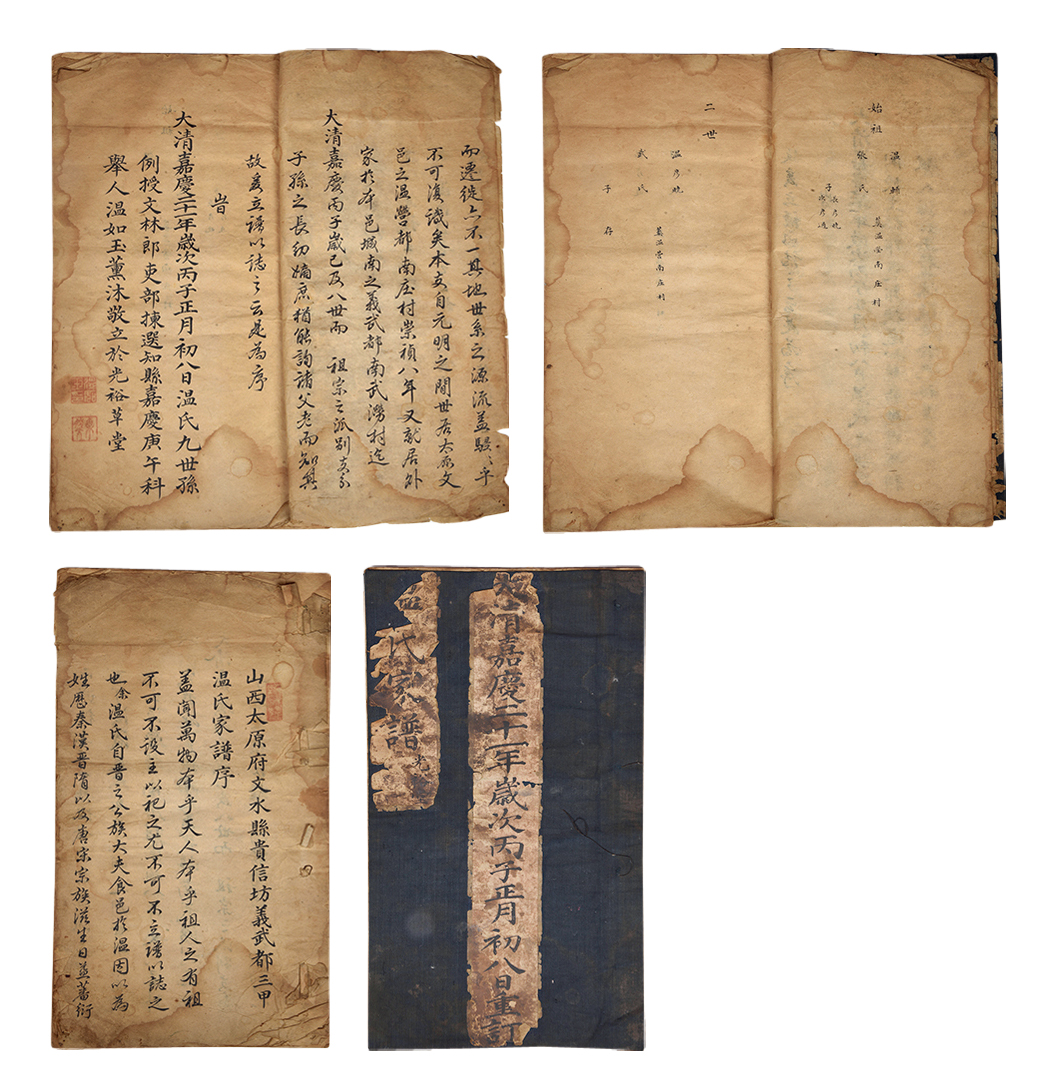 而遷徙亦不一其地世系之源流蓋駸〻乎
不可復識矣本支自元明之間世居太原文
邑之温營都南庄村崇禎八年又就居外
家於本邑城南之義武都南武灣村迄
大清嘉慶丙子歲已及八世而 祖宗之派別支分
子孫之長幼嫡庶猶能詢諸父老而知其
故爰立譜以誌之云是為序
旹
大清嘉慶二十一年歲次丙子正月初八日温氏九世孫
例授文林郎吏部揀選知縣嘉慶庚午科
舉人温如玉薰沐敬立於光裕草堂
始祖
張氏
葬温營南庄村
二世
温彦曉
武氏
葬温營南庄村
子 存
山西太原府文水縣貴信坊義武都三甲
温氏家譜序
蓋聞萬物本乎天人本乎祖人之有祖
不可不設主以祀之尤不可不立譜以誌之
也余温氏自晋之公族大夫食邑於温因以為
姓歷秦漢晉隋以及唐宋宗族滋生日益蕃衍
清嘉慶二十一年歲次丙子正月初八日重訂
氏家譜